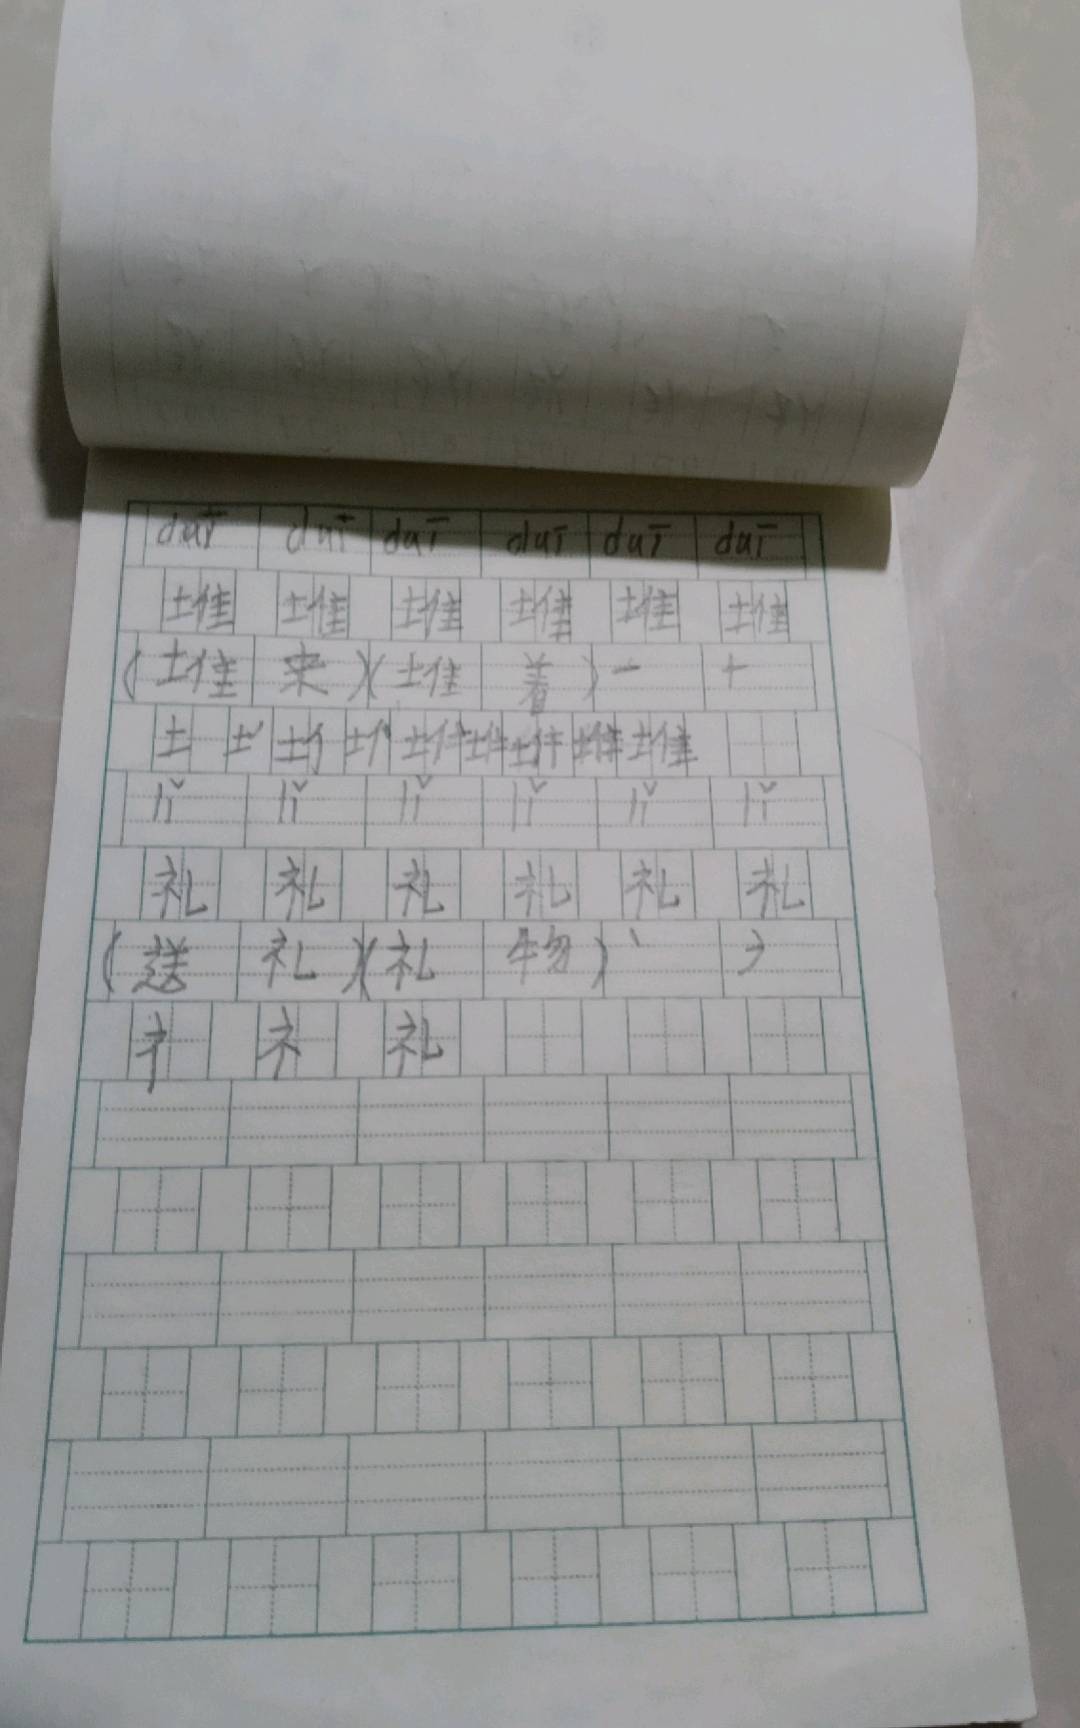 duī duī duī duī duī duī
堆 堆 堆 堆 堆 堆
(堆来)(堆着) 一 十
土
lǐ lǐ lǐ lǐ lǐ lǐ
礼 礼 礼 礼 礼 礼
(送礼)(礼物) 丶
礻 礼